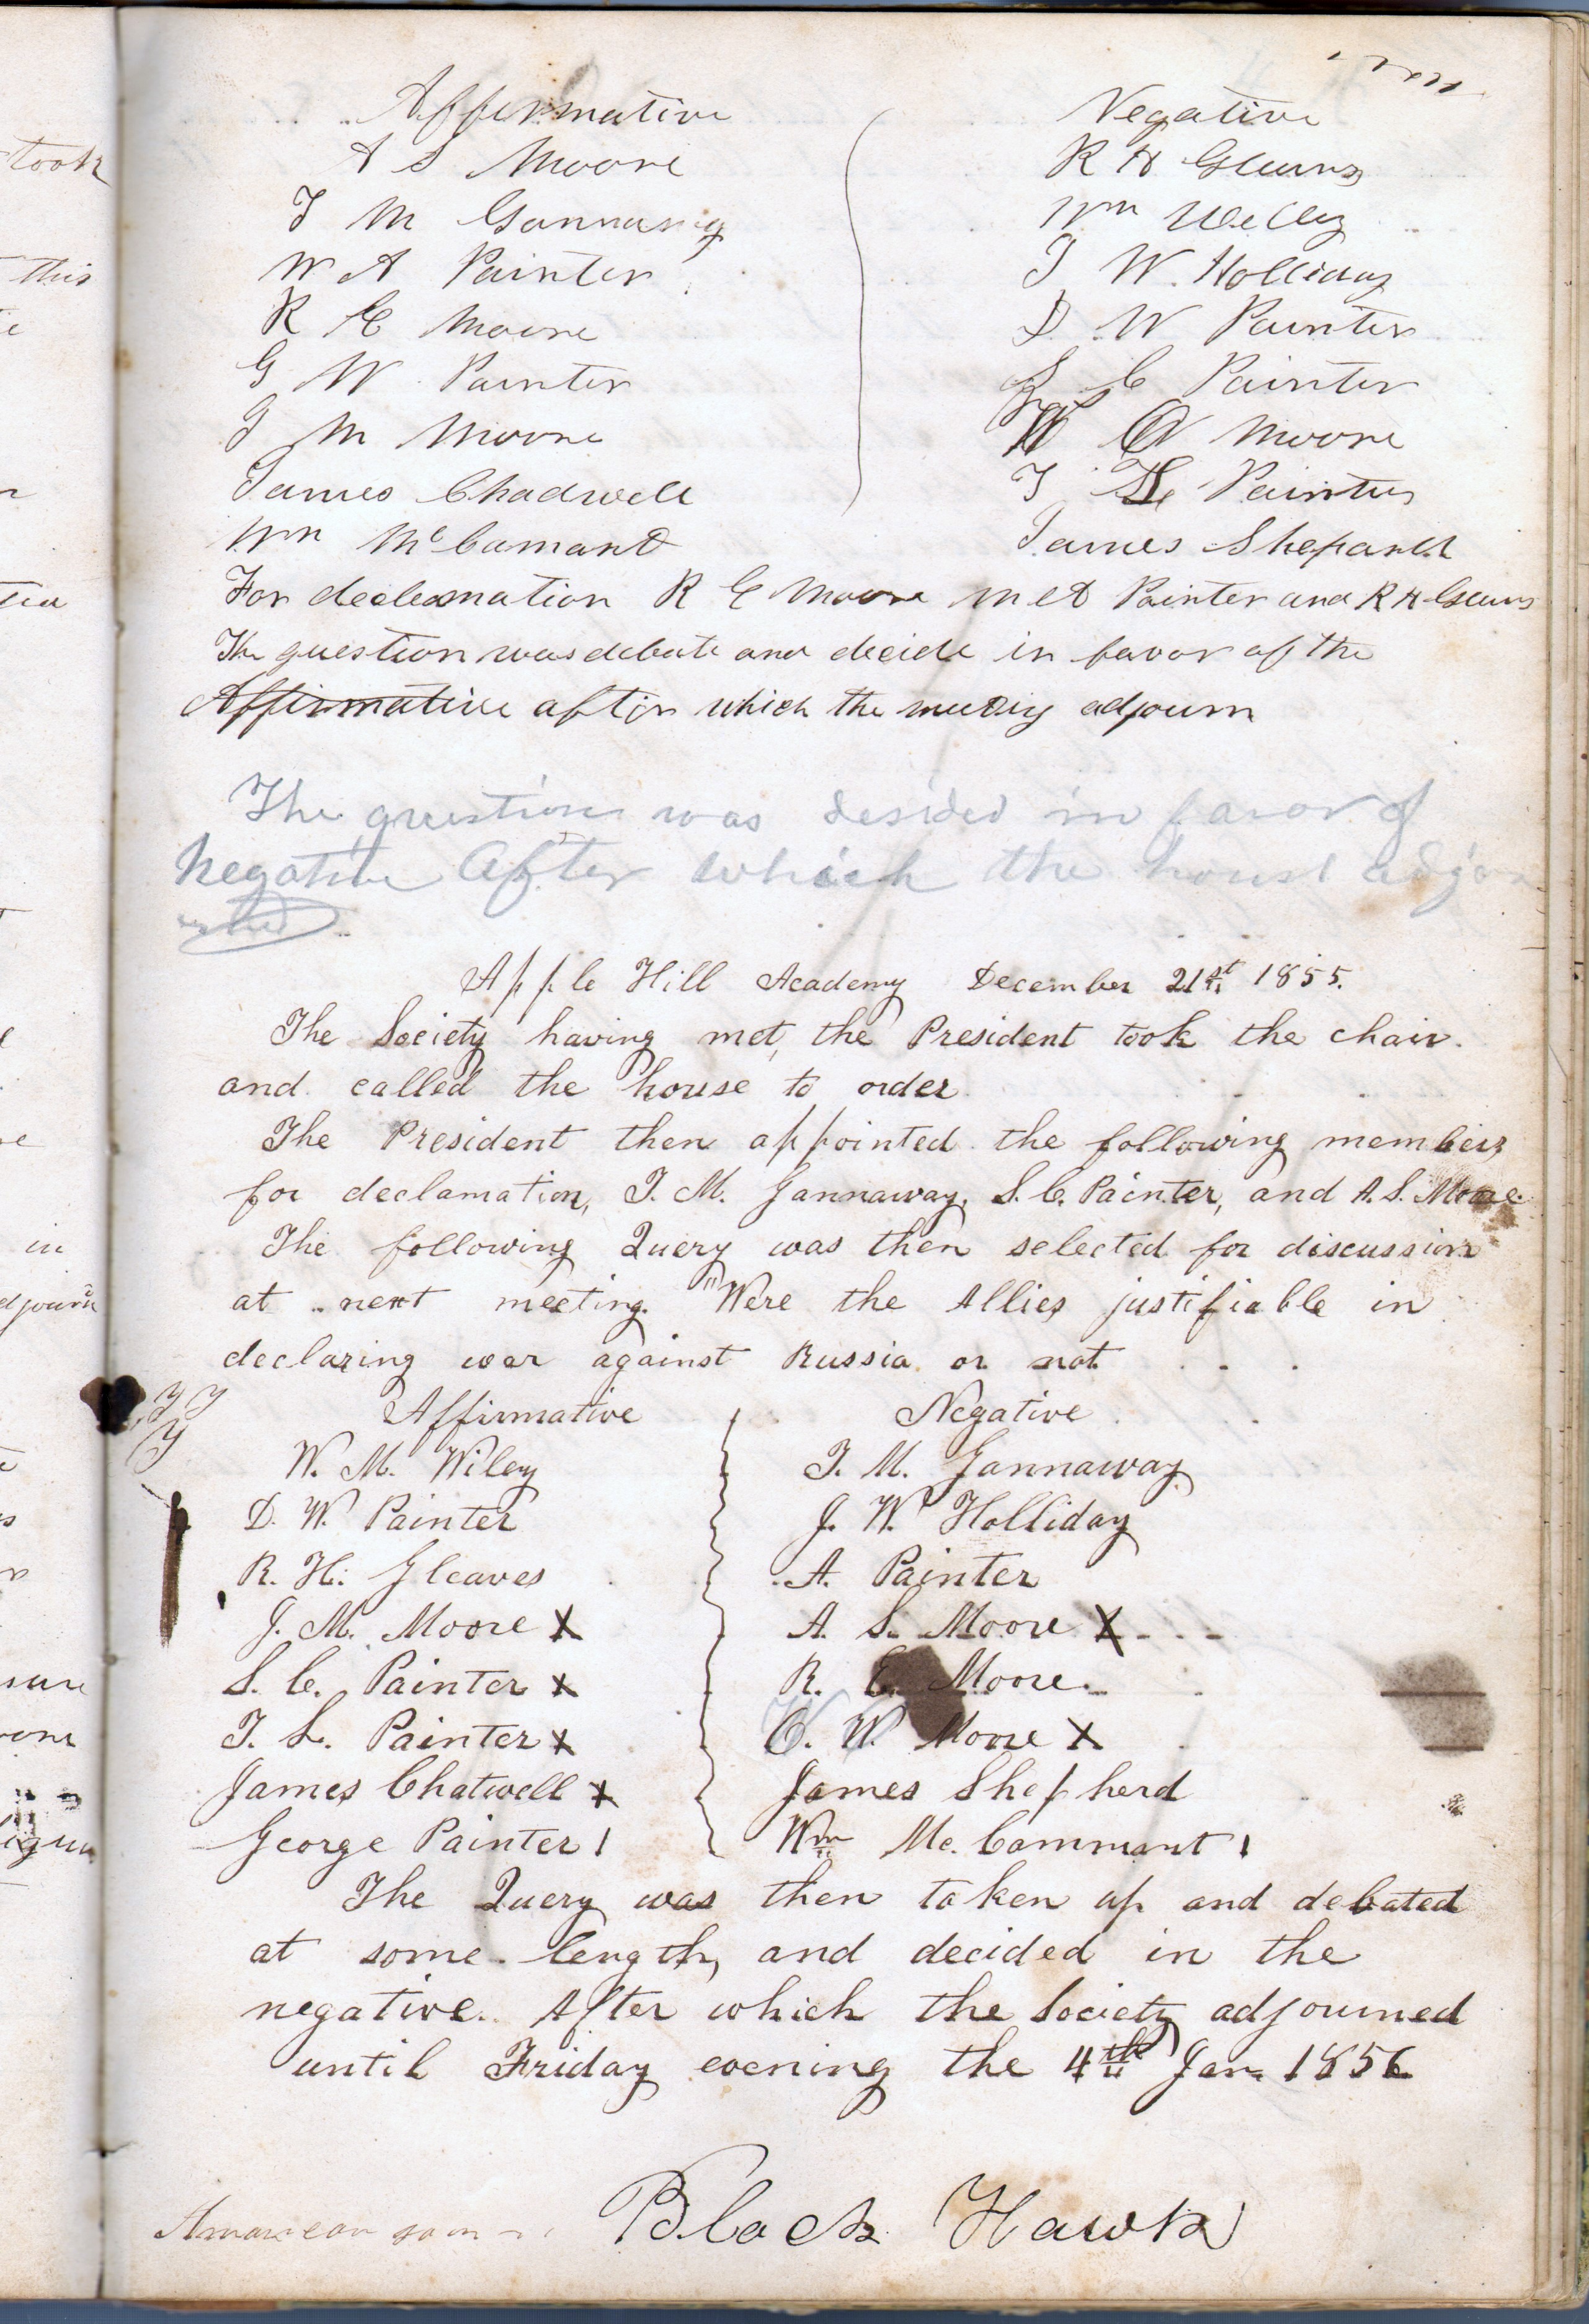 Affirmative
A S Moore
T M Gannaway
W A Painter
R E Moore
G W Painter
J M Moore
James Chadwell
Wm McCamant
Negative
R H Gleaves
Wm Wiley
J W Holliday
D W Painter
S C Painter
W Moore
T L Painter
James Shepard
For declamation R E Moore Painter and R H Gleavs
The question was debate and decide in favor of the
Affirmative after which the meeting adjourn
The question was desided in favor of
Negative After which the house adjor
rned
Apple Hill Academy December 21st 1855.
The Society having met, the President took the chair.
and called the house to order.
The President then appointed the following members
for declamation, T. M. Gannaway, S. C. Painter, and A. S. Moore.
The following Query was then selected for discussion
at next meeting. "Were the Allies justifiable in
declaring war against Russia or not
Affirmative
W. M. Wiley
D. W. Painter
R. H. Gleaves
J. M. Moore X
S. C. Painter X
T. L. Painter X
James Chatwell X
George Painter 1
Negative
T. M. Gannaway
J. W. Holliday
A. Painter
A. S. Moore X
R. E. Moore
O. W. Moore X
James Shepherd
Wm Mc. Cammant 1
The Query was then taken up and debated
at some length, and decided in the
negative. After which the Society adjourned
until Friday evening the 4th Jan. 1856
Black Hawk
took
this
in